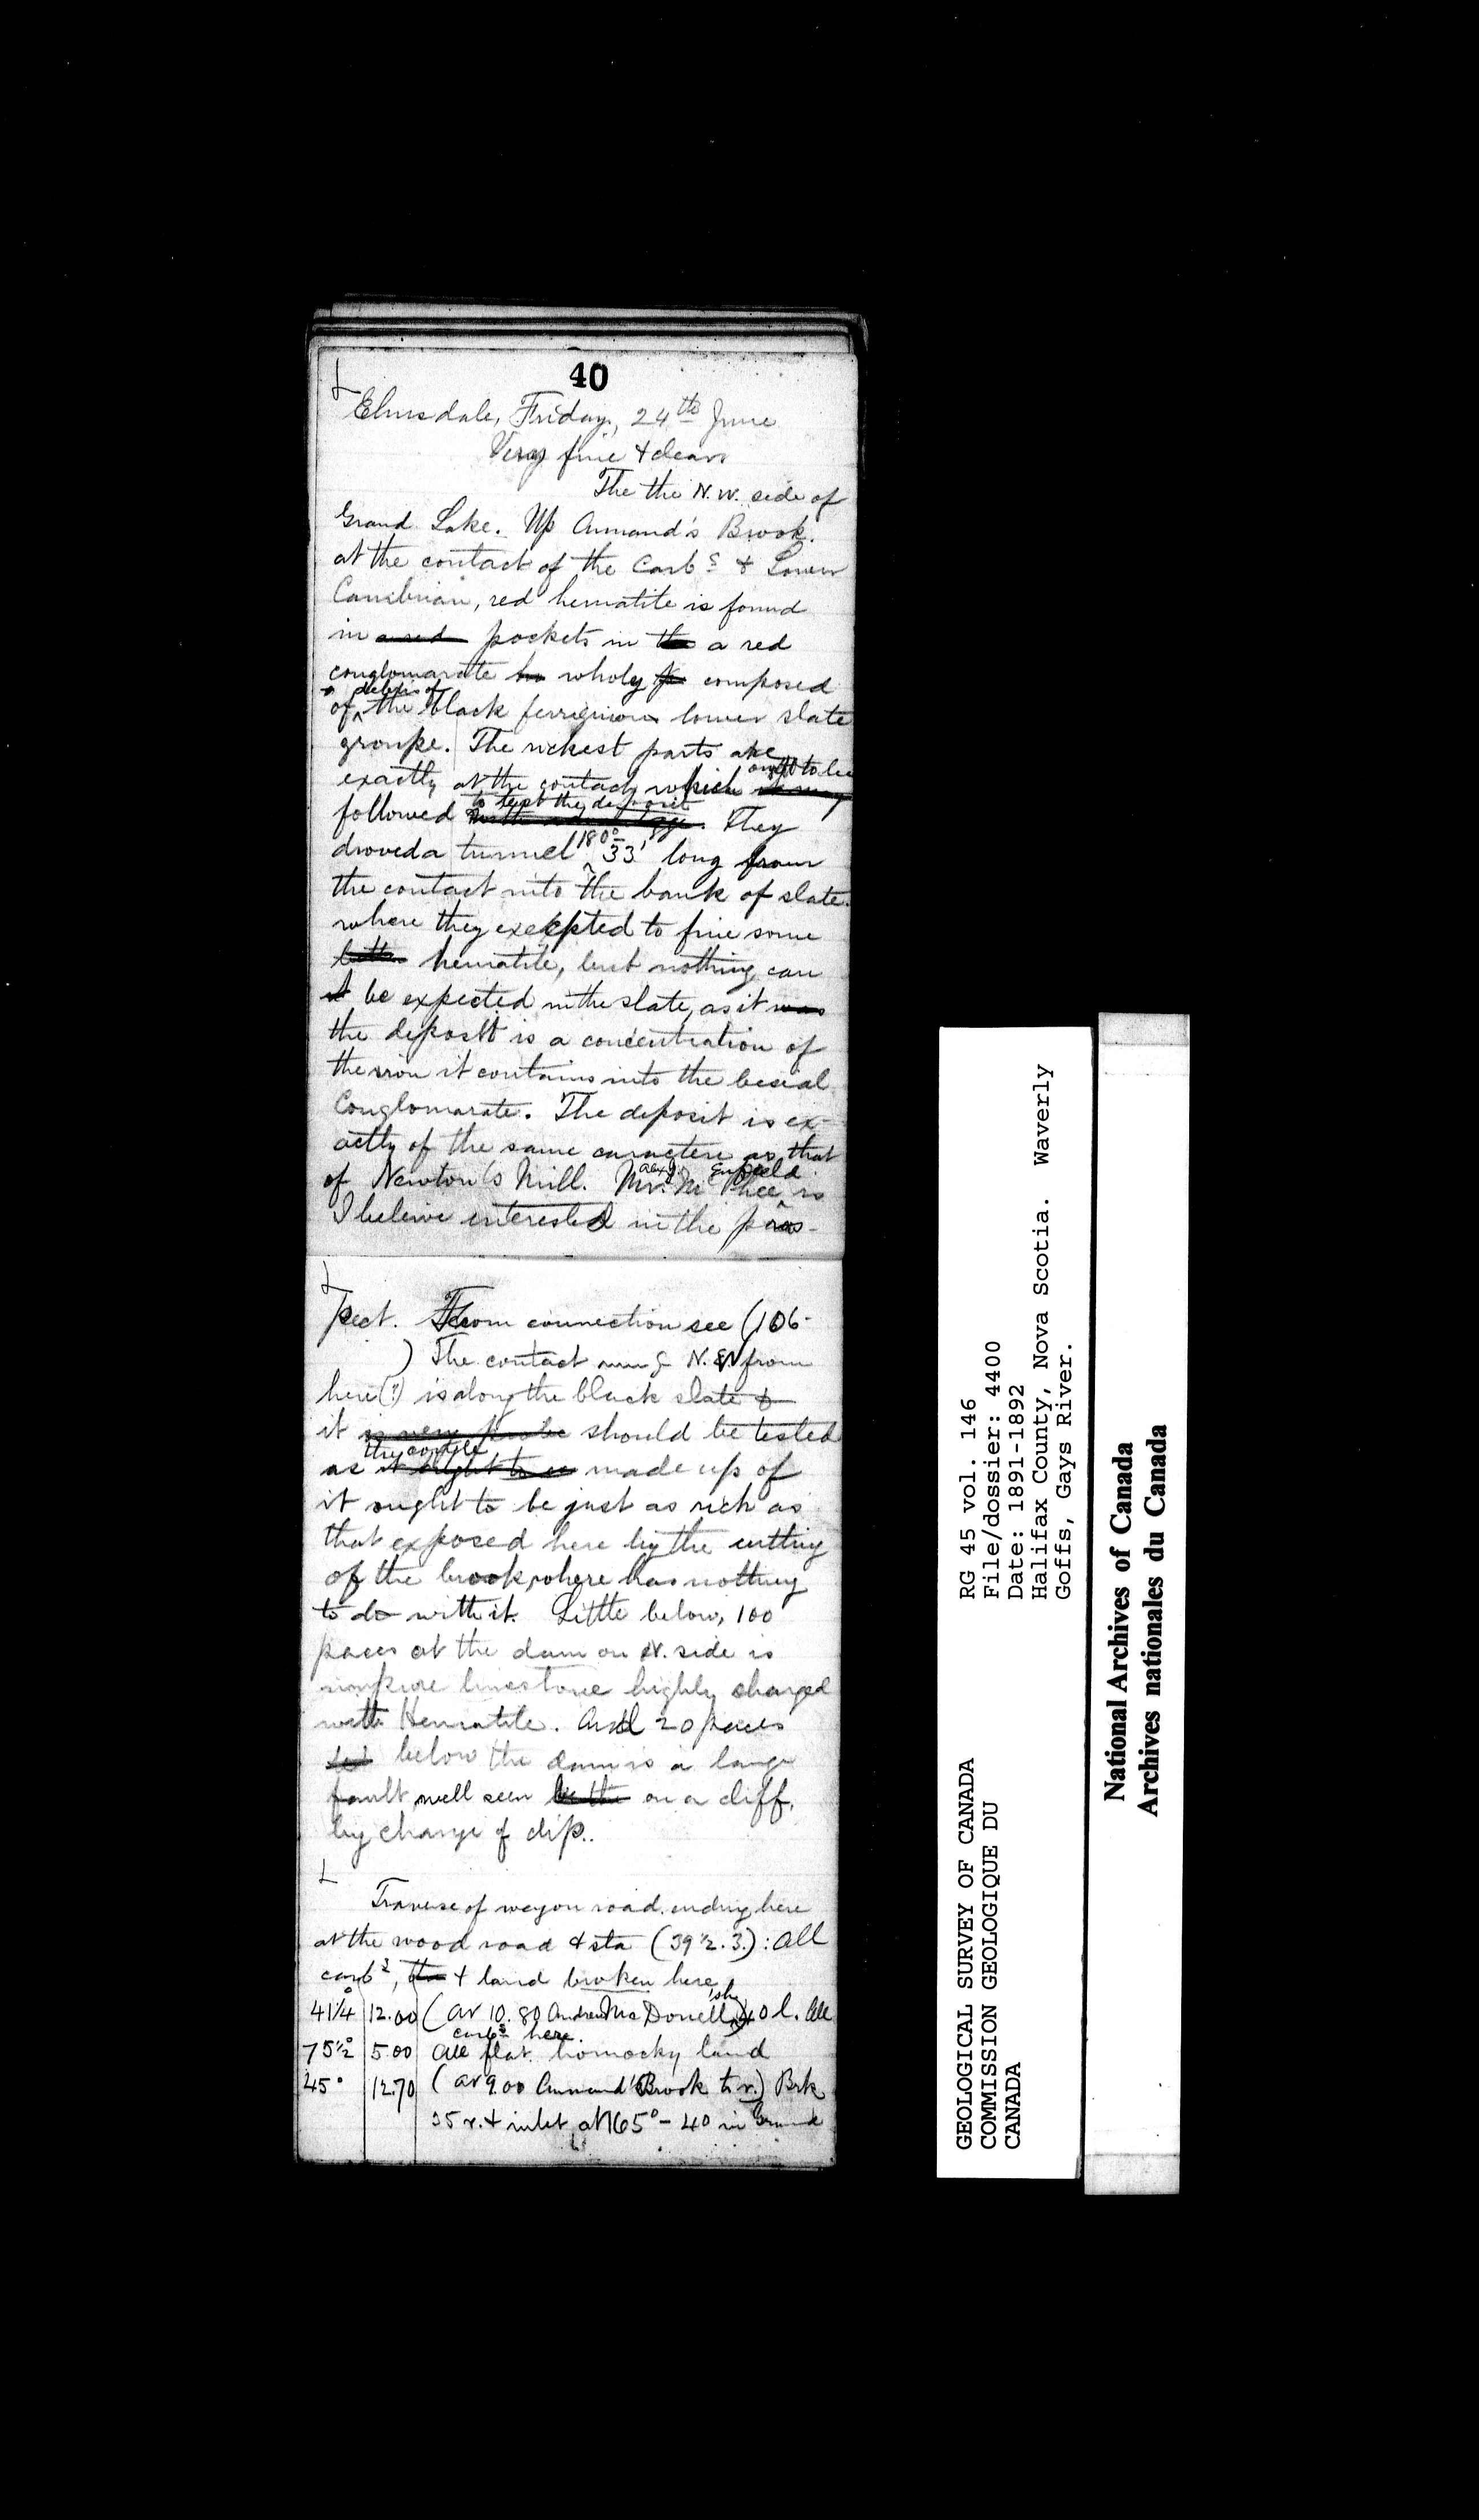 40
Elmsdale, Friday, 24th June
Very fine & clear
The the N.W. side of
Grand Lake. Up Annand's Brook.
at the contact of the Carbs & Lower
Cambrian, red hematite is found
in a red pockets in the a red
conglomarate wholy composed
of debris of the black ferriginous lower slate
groupe. The richest parts are
exactly at the contact, which ought to be
followed to test the deposit. They
droved a tunnel 180° 33' long from
the contact into the bank of slate.
where they exeepted to fine some
hematite, but nothing can
be expected in the slate, as it was
the deposit is a concentration of
the iron it contains into the beseal
Conglomarate. The deposit is ex-
actly of the same caractere as that
of Newton's Mill. Mr. Alex. Mc Phee Enfield is
I beleive interested in the pros-
pect. From connection see (106-
) The contact runs N.W. from
here (?) is along the black slate &
it is very probe should be tested
as the congle made up of
it ought to be just as rich as
that exposed here by the cutting
of the brook, where has nothing
to do with it. Little below, 100
paces at the dam on N. side is
impure limestone highly charged
with Hematite. And 20 paces
below the dam is a large
fault, well seen on a cliff,
by change of dip..
Traverse of wagon road. ending here
at the wood road & sta (39½.3.): all
carbs, & land broken here
41¼° 12.00 (at 10.80 Andrew Mc Donell's he) 40 l. All
carbs here.
75½° 5.00 All flat. homocky land
45° 12.70 (at 9.00 Annand's Brook to r.) Brk
35 r. & inlet at 165° - 40 in Grand
GEOLOGICAL SURVEY OF CANADA
COMMISSION GEOLOGIQUE DU
CANADA
RG 45 vol. 146
File/dossier: 4400
Date: 1891-1892
Halifax County, Nova Scotia. Waverly
Goffs, Gays River.
National Archives of Canada
Archives nationales du Canada